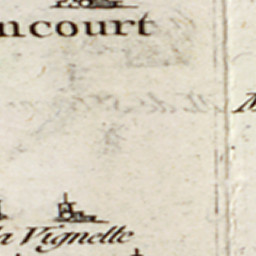 ncourt
M
la Vignette